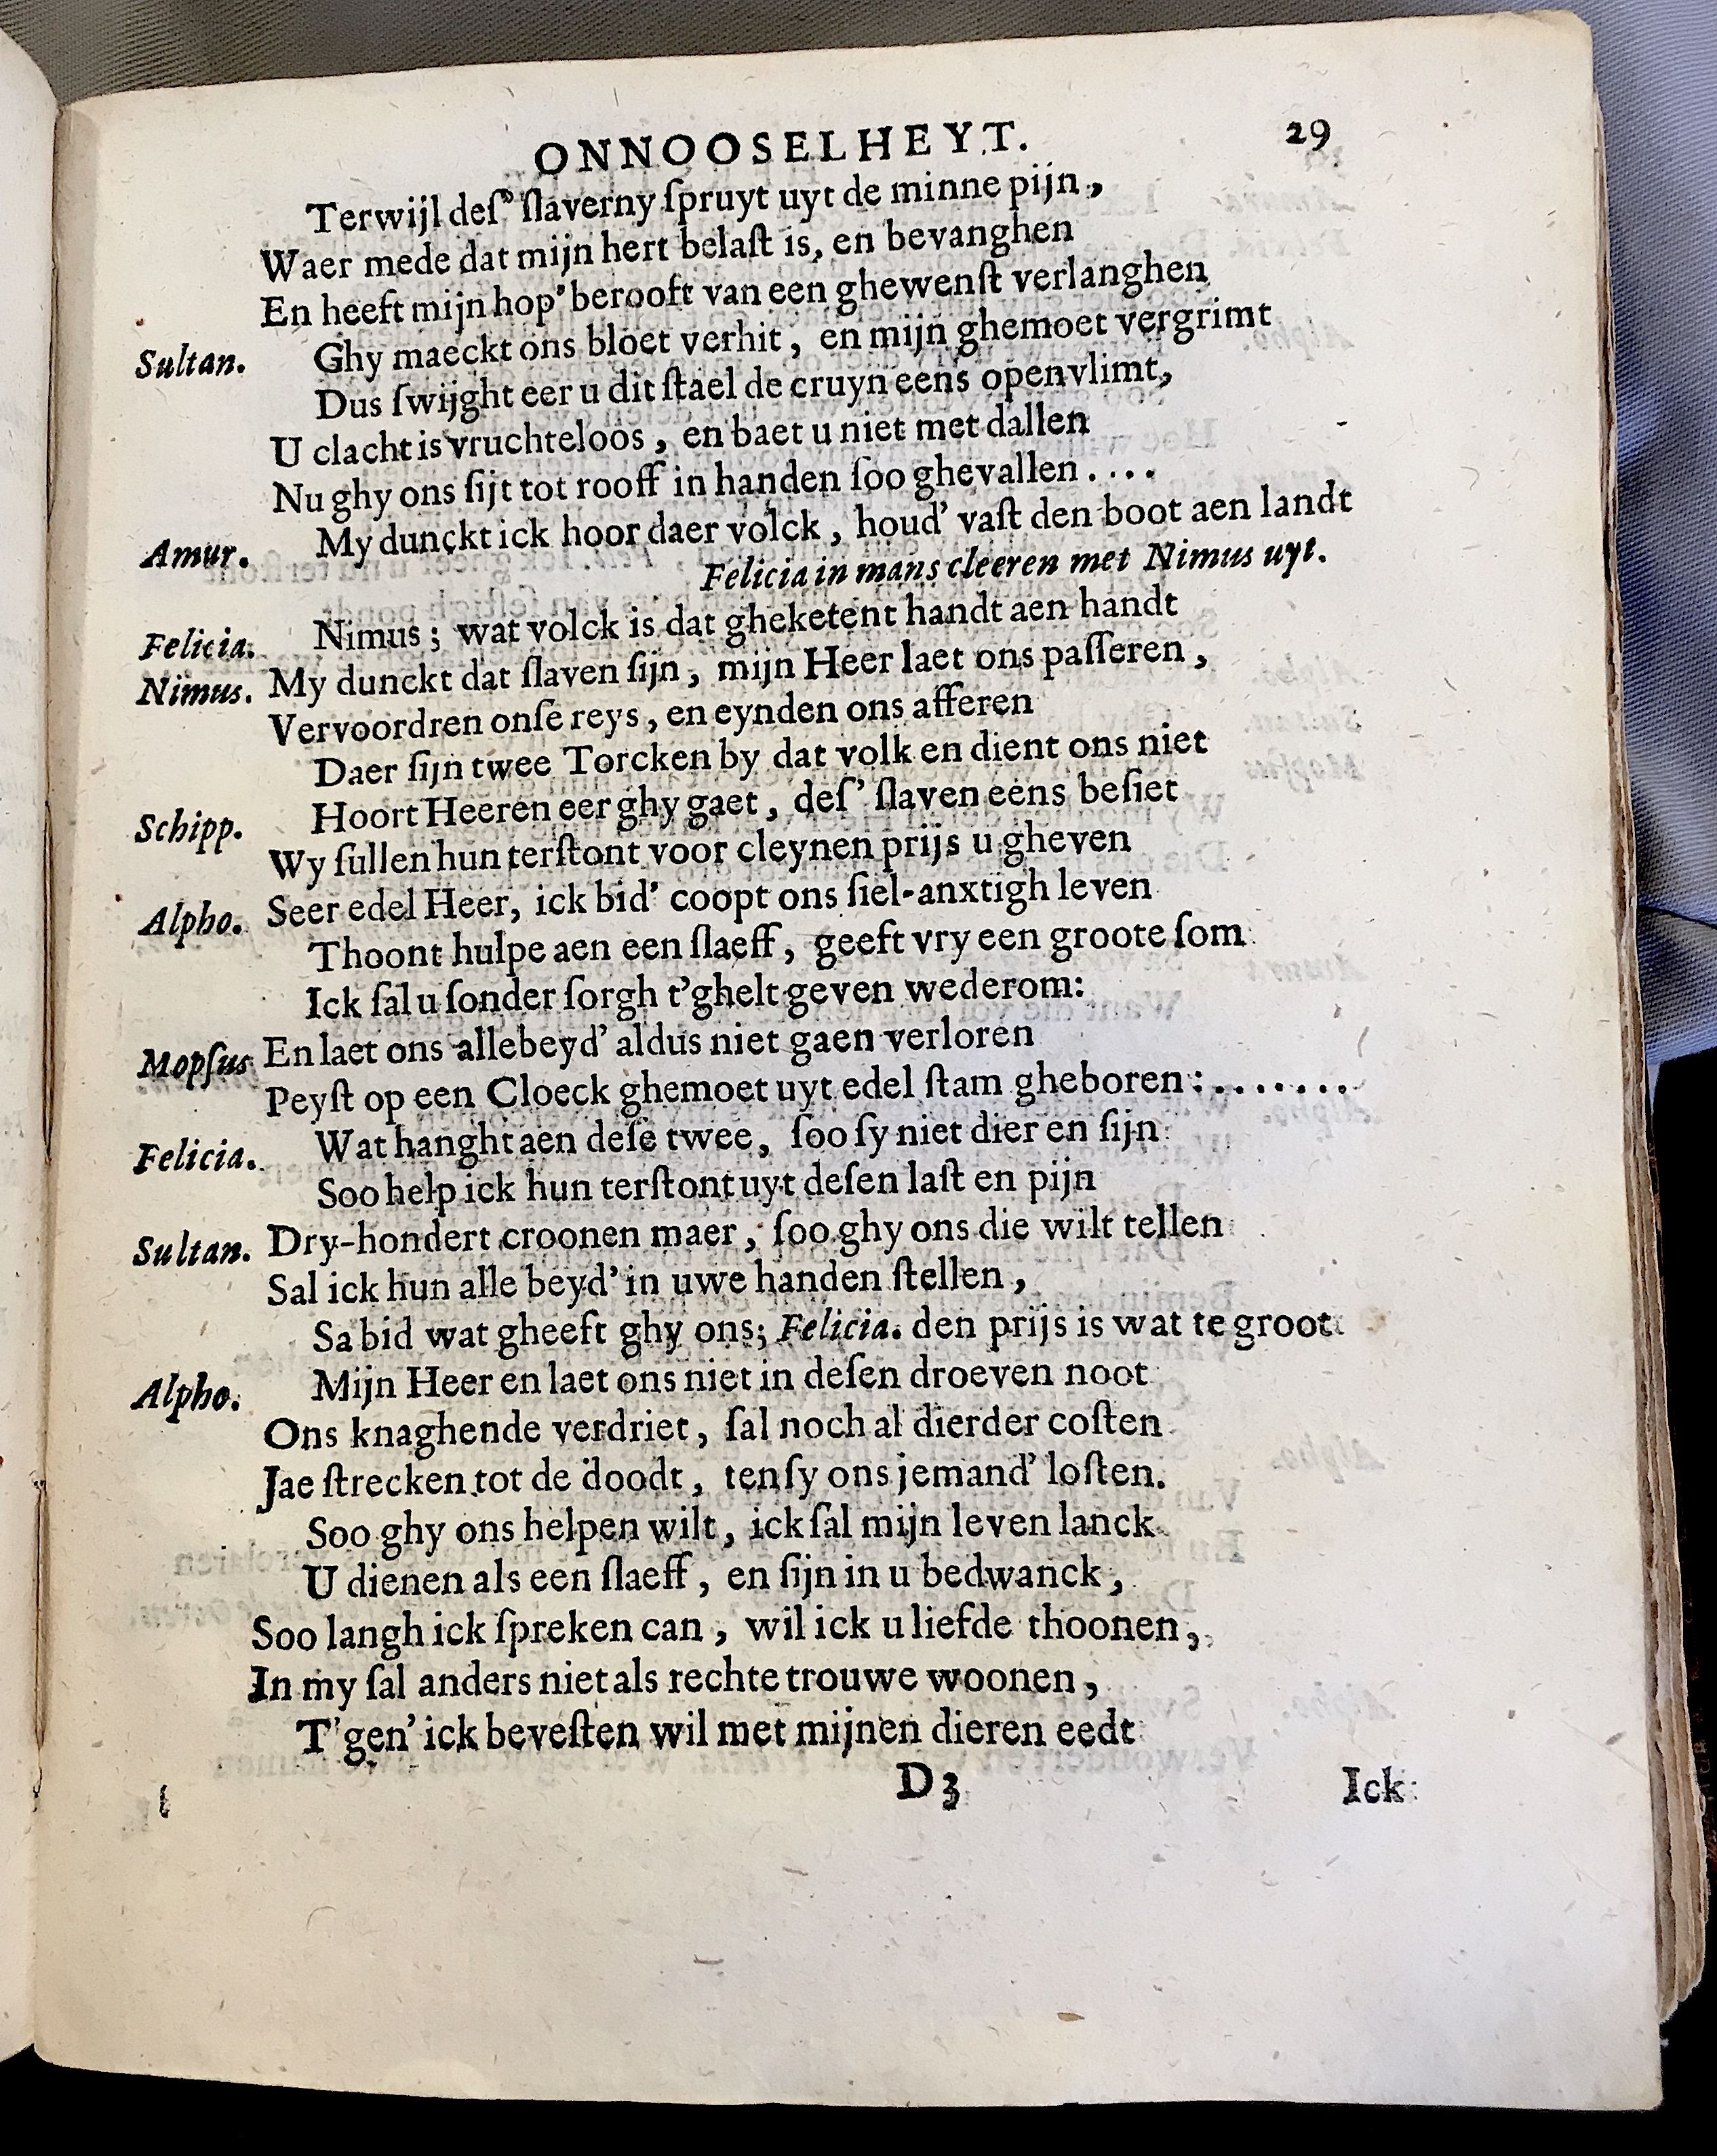 ONNOOSELHEYT. 29
Terwijl deſ' ſlaverny ſpruyt uyt de minne pijn,
Waer mede dat mijn hert belaſt is, en bevanghen
En heeft mijn hop' berooft van een ghewenſt verlanghen
Sultan. Ghy maeckt ons bloet verhit, en mijn ghemoet vergrimt
Dus ſwijght eer u dit ſtael de cruyn eens openvlimt,
U clacht is vruchteloos, en baet u niet met dallen
Nu ghy ons ſijt tot rooff in handen ſoo ghevallen....
Amur. My dunckt ick hoor daer volck, houd' vaſt den boot aen landt
Felicia in mans cleeren met Nimus uyt.
Felicia. Nimus; wat volck is dat gheketent handt aen handt
Nimus. My dunckt dat ſlaven ſijn, mijn Heer laet ons paſſeren,
Vervoordren onſe reys, en eynden ons afferen
Daer ſijn twee Torcken by dat volk en dient ons niet
Schipp. Hoort Heeren eer ghy gaet, deſ' ſlaven eens beſiet
Wy ſullen hun terſtont voor cleynen prijs u gheven
Alpho. Seer edel Heer, ick bid' coopt ons ſiel-anxtigh leven
Thoont hulpe aen een ſlaeff, geeft vry een groote ſom
Ick ſal u ſonder ſorgh t'ghelt geven wederom:
Mopſus En laet ons allebeyd' aldus niet gaen verloren
Peyſt op een Cloeck ghemoet uyt edel ſtam gheboren:.......
Felicia. Wat hanght aen deſe twee, ſoo ſy niet dier en ſijn
Soo help ick hun terſtont uyt deſen laſt en pijn
Sultan. Dry-hondert croonen maer, ſoo ghy ons die wilt tellen
Sal ick hun alle beyd' in uwe handen ſtellen,
Sa bid wat gheeft ghy ons; Felicia. den prijs is wat te groot
Alpho. Mijn Heer en laet ons niet in deſen droeven noot
Ons knaghende verdriet, ſal noch al dierder coſten
Jae ſtrecken tot de doodt, ten ſy ons jemand' loſten.
Soo ghy ons helpen wilt, ick ſal mijn leven lanck
U dienen als een ſlaeff, en ſijn in u bedwanck,
Soo langh ick ſpreken can, wil ick u liefde thoonen,
In my ſal anders niet als rechte trouwe woonen,
T'gen' ick beveſten wil met mijnen dieren eedt
D3 Ick